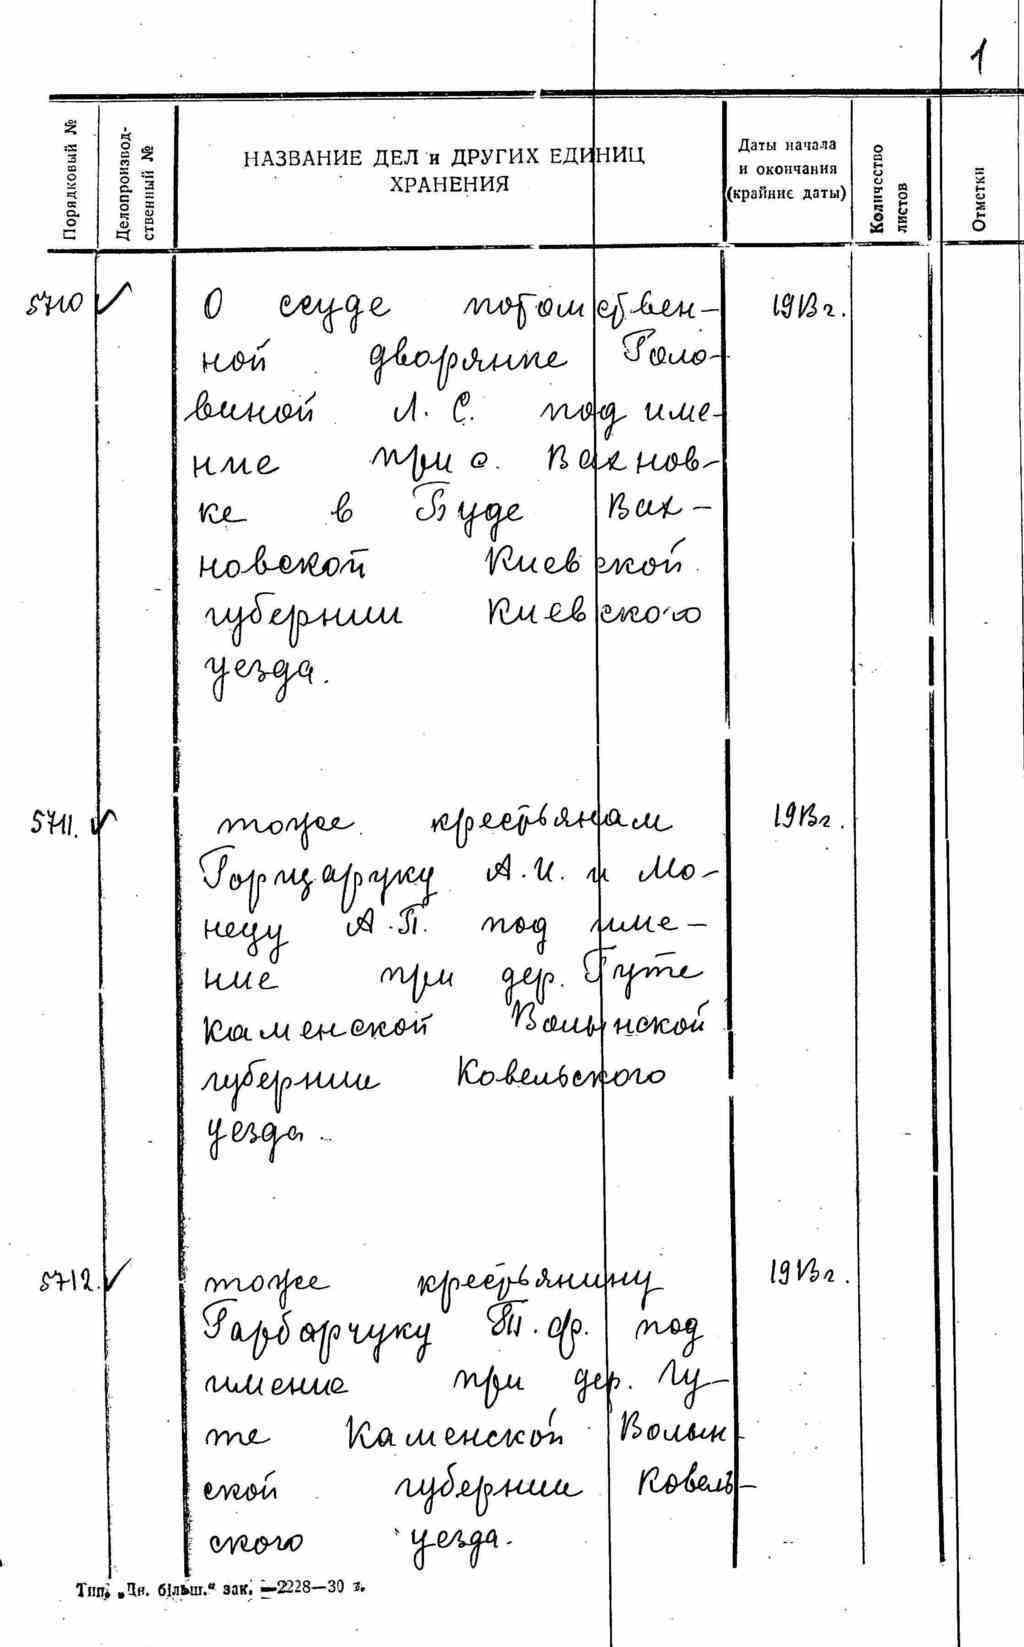 1
Порядковый №
Делопроизвод-
ственный №
НАЗВАНИЕ ДЕЛ и ДРУГИХ ЕДИНИЦ
ХРАНЕНИЯ
Даты начала
и окончания
(крайние даты)
Количество
листов
Отметки
5710 О ссуде потомствен- 1913г.
ной дворянке Голо-
виной Л. С. под име-
ние при с. Вахнов-
ке в Буде Вах-
новской Киевской
губернии Киевского
уезда.
5711. тоже крестьянам 1913г.
Горщаруку А. И. и Мо-
нецу А. П. под име-
ние при дер. Гуте
Каменской Волынской
губернии Ковельского
уезда.
5712. тоже крестьянину 1913г.
Гарборчуку П. Ф. под
имение при дер. Гу-
те Каменской Волын-
ской губернии Ковель-
ского уезда.
Тип. „Дн. більш.“ зак. —2228—30 т.